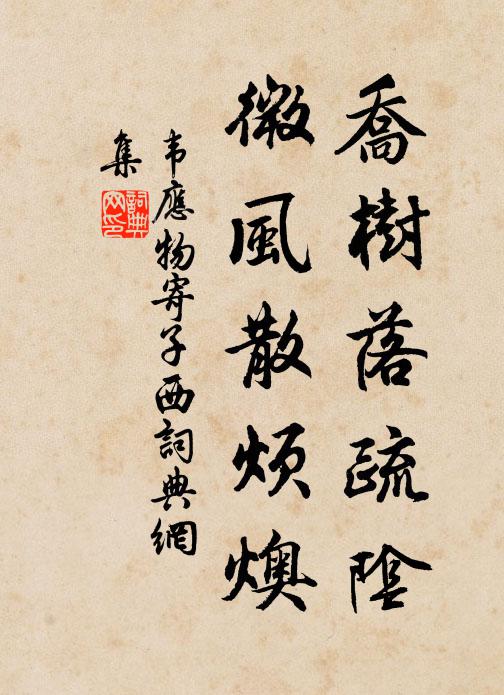 喬樹落疏陰
微風散煩燠
韦應物寄子西詞典網
集
詞典网印